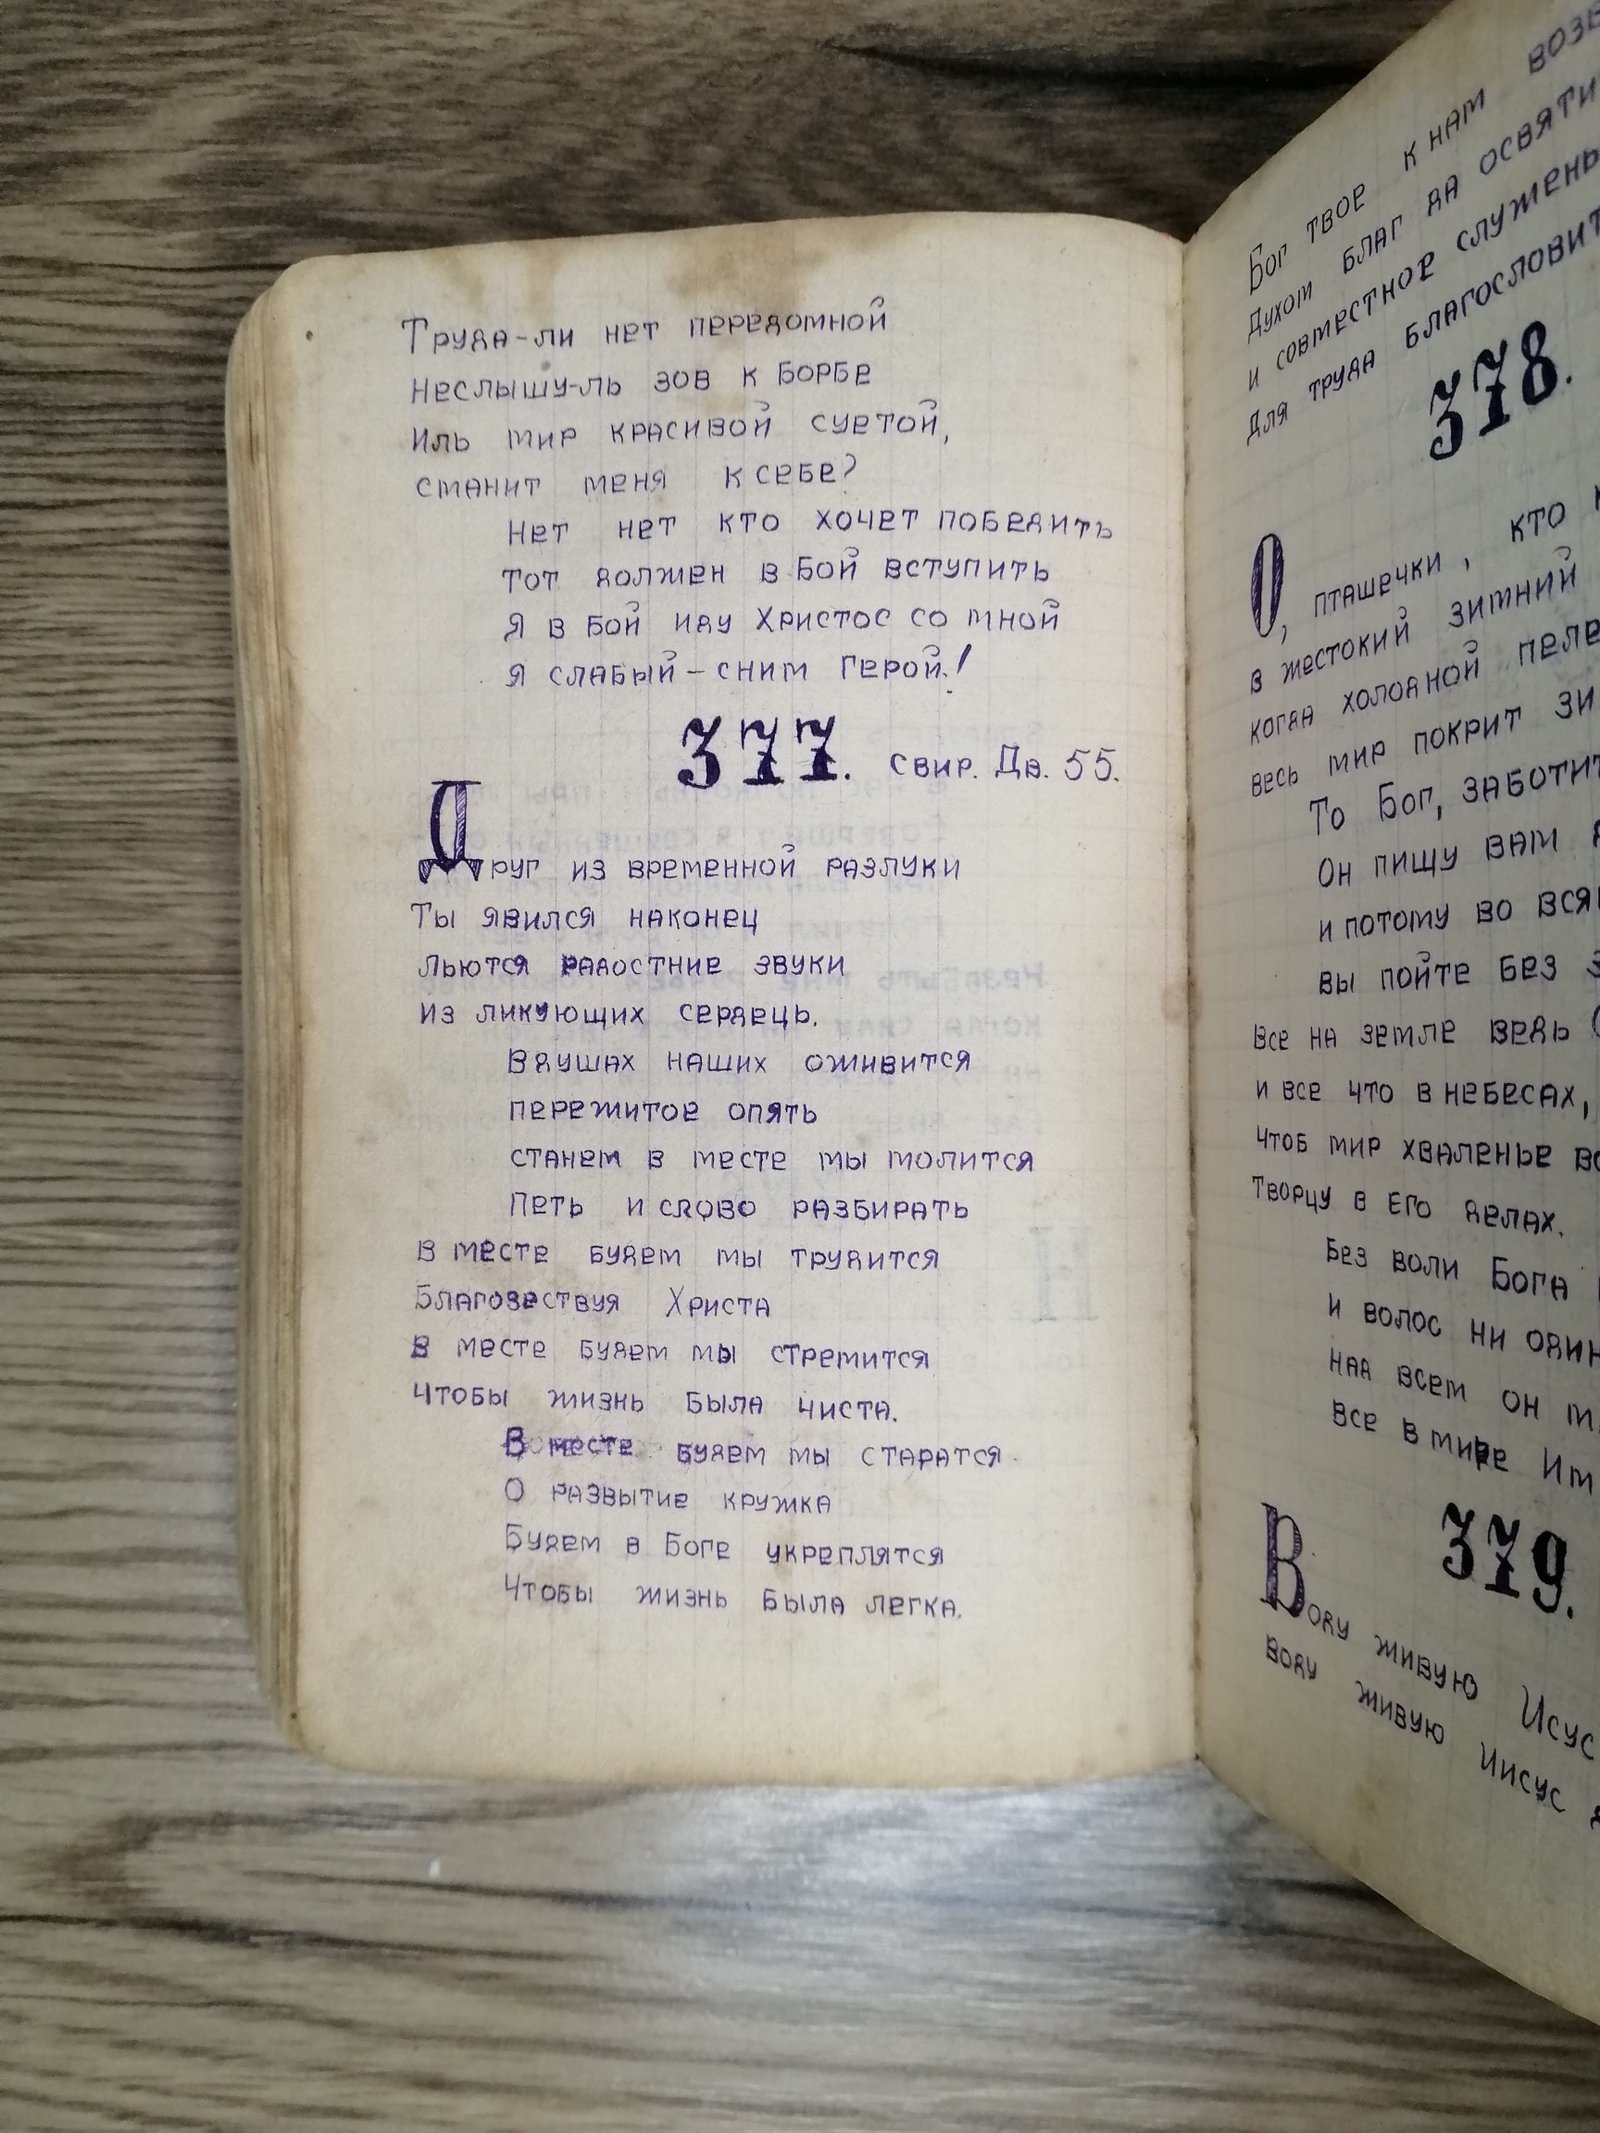 Труда-ли нет передомной
неслышу-ль зов к борбе
Иль мир красивой суетой,
сманит меня к себе?
Нет нет кто хочет победить
тот должен в бой вступить
я в бой иду Христос со мной
я слабый - сним герой!
377. Свир. Дв. 55.
Друг из временной разлуки
Ты явился наконец
льются радостние звуки
из ликующих сердець.
Вдушах наших оживится
пережитое опять
станем в месте мы молится
Петь и слово разбирать
в месте будем мы трудится
Благовествуя Христа
в месте будем мы стремится
чтобы жизнь была чиста.
В месте будем мы старатся
О развытие кружка
Будем в Боге укреплятся
Чтобы жизнь была легка.
Бог твое к нам
Духом благ да
и совместное
Для труда
378.
О, пташечки, кто
в жестокий зимний
когда холодной
весь мир покрит
То Бог,
Он пищу вам
и потому во
вы пойте без
все на земле ведь
и все что в небесах,
чтоб мир хваленье
творцу в его делах.
Без воли Бога
и волос ни
над всем он
все в мире
379.
Воду живую
воду живую Иисус